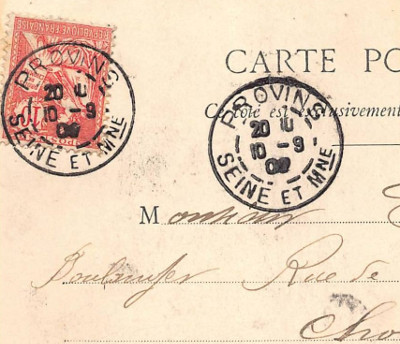 RÉPUBLIQUE FRANÇAISE
PROVINS
20
10 - 9
SEINE ET MNE
CARTE PO
PROVINS
20
10 - 9
SEINE ET MNE
Ce côté est exclusivemen
Monsieur
Boulanger Rue de